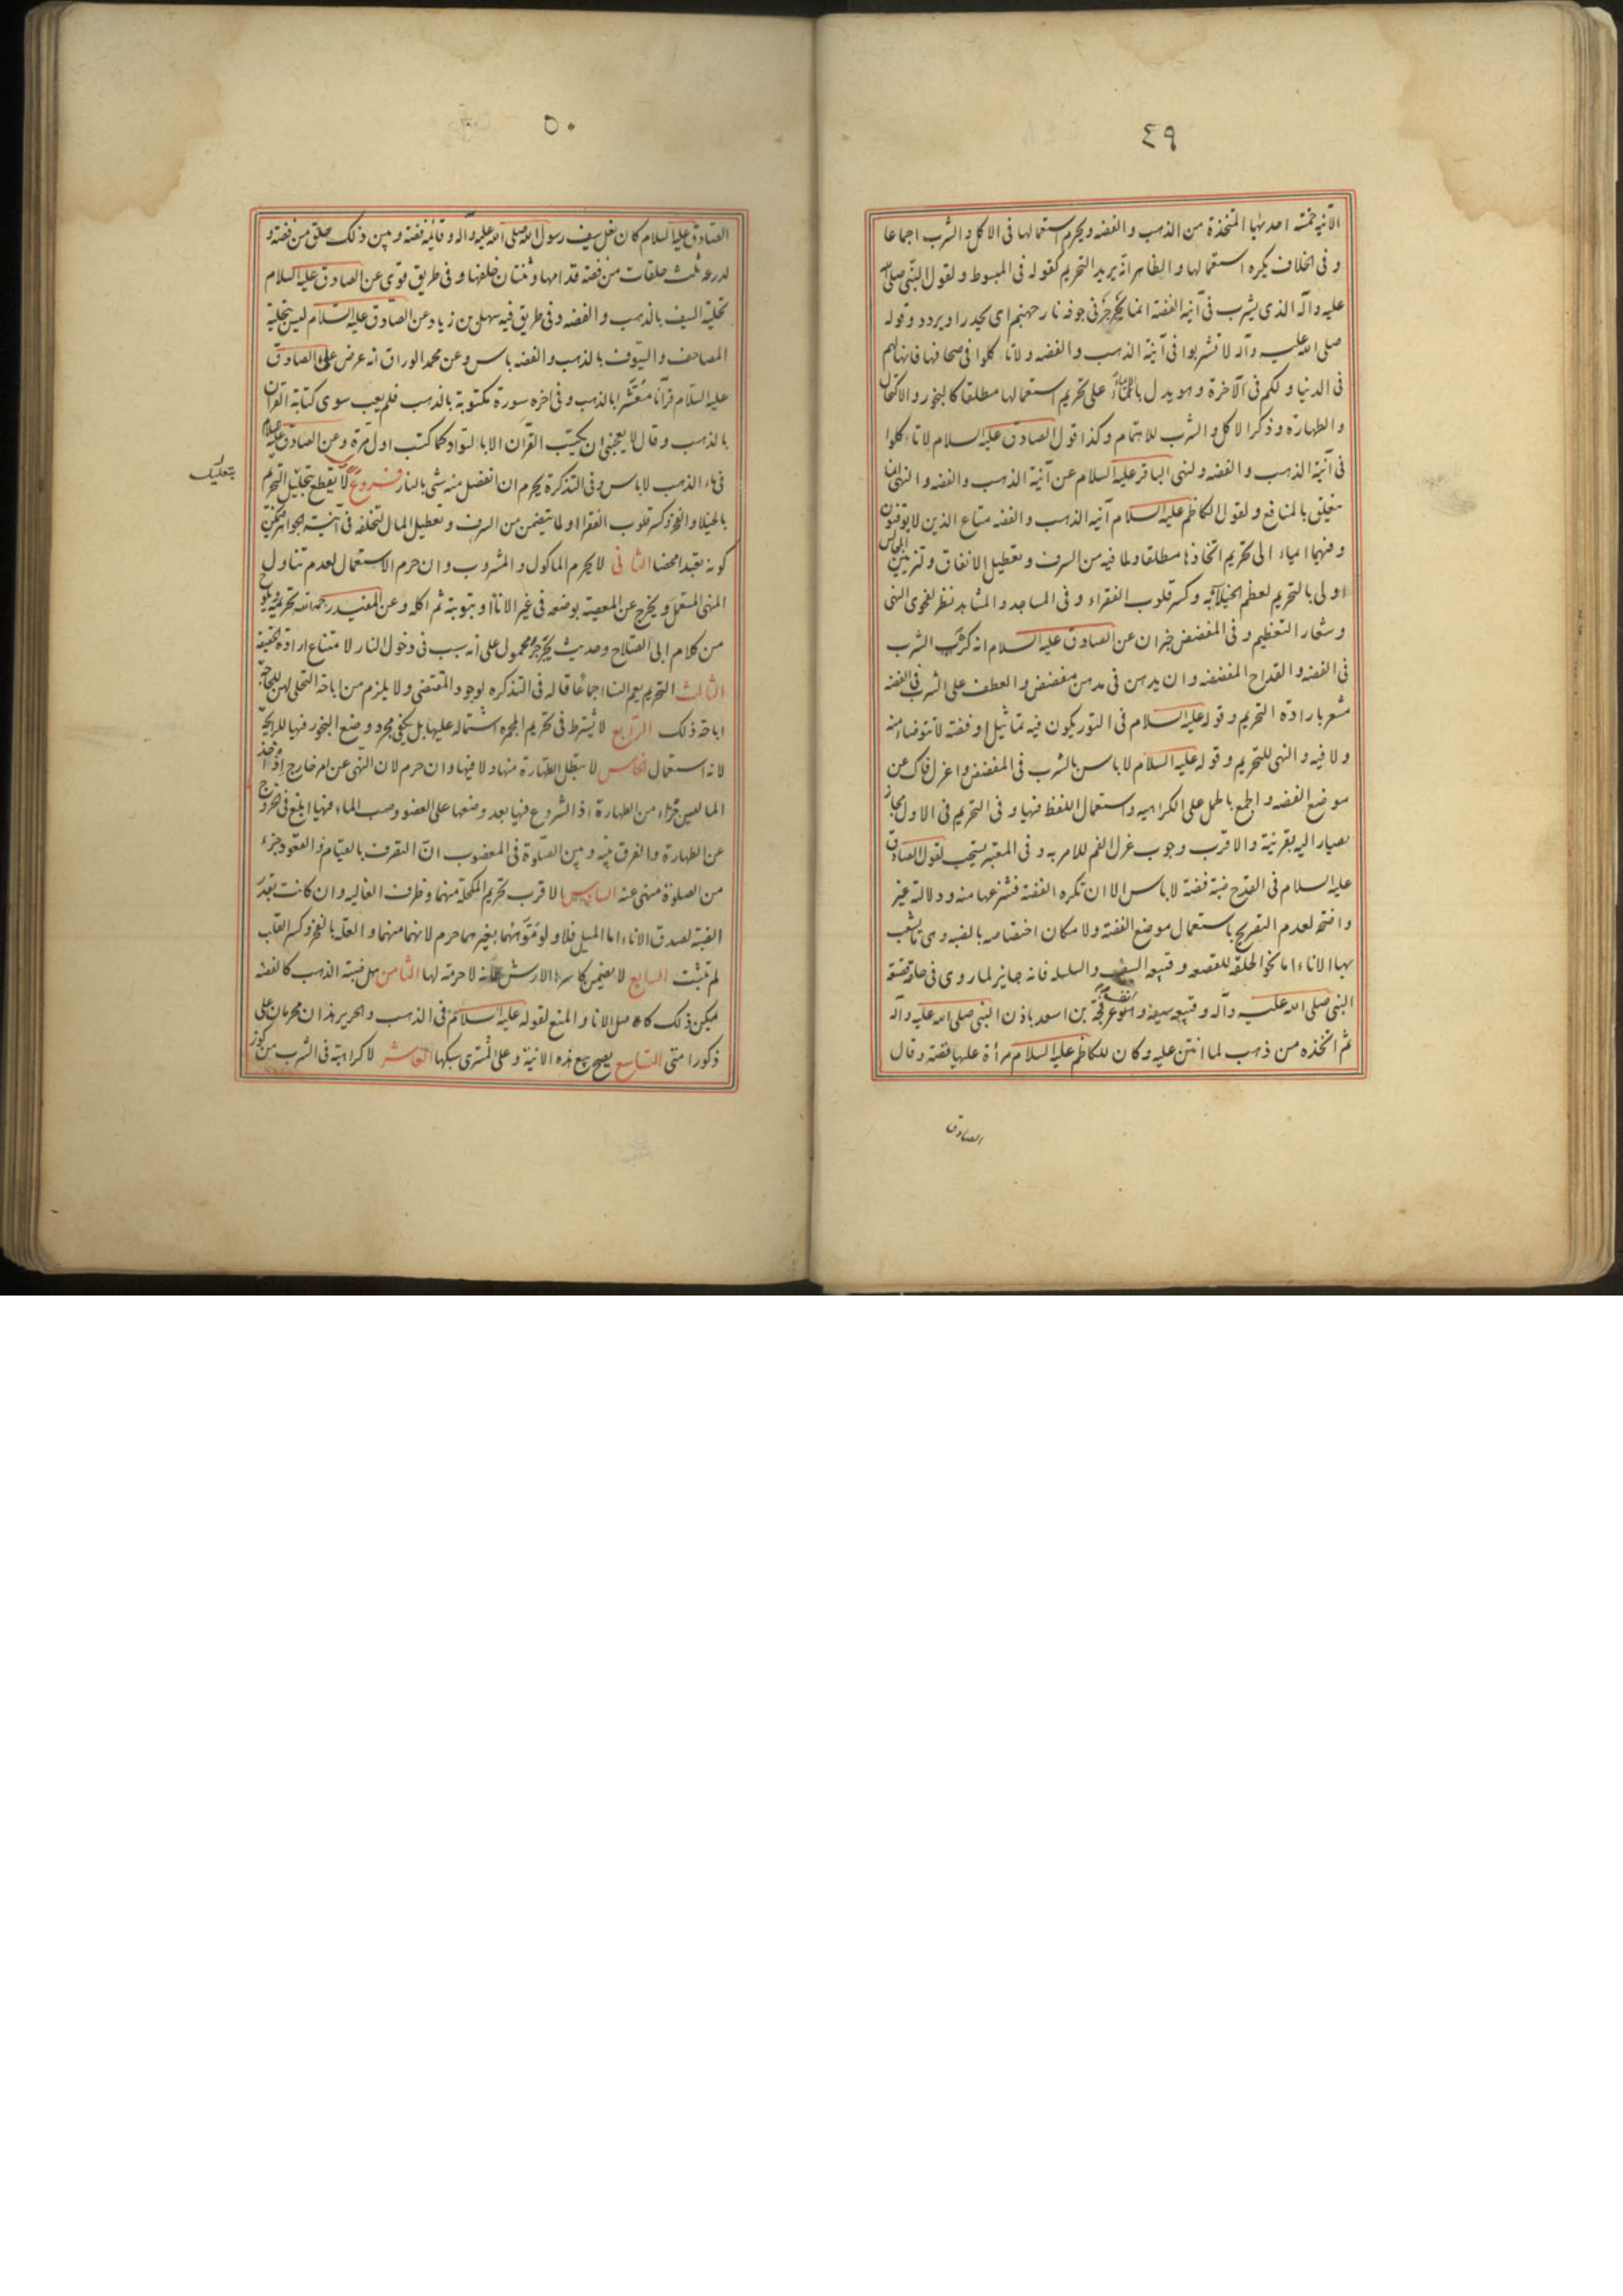 ٤٩
الآنية خمسة احديها المتخذة من الذهب والفضه ويحرم استعمالها فى الاكل والشرب اجماعا
وفى الخلاف يكره استعمالها والظاهر انه يريد التحريم كقوله فى المبسوط ولقول النبى صلى الله
عليه وآله الذى يشرب فى آنية الفضة انما يُجَرجِرُ فى جوفه نار جهنم اى يحدر او يردد وقوله
صلى الله عليه وآله لا تشربوا فى آنية الذهب والفضه ولا تاكلوا فى صحافها فانها لهم
فى الدنيا ولكم فى الآخرة وهو يدل بالايماء على تحريم استعمالها مطلقا كالبخور والاكتحال
والطهارة وذكر الاكل والشرب للاهتمام وكذا قول الصادق عليه السلام لا تاكلوا
فى آنية الذهب والفضه ولنهى الباقر عليه السلام عن آنية الذهب والفضه والنهى انما
يتعلق بالمنافع ولقول الكاظم عليه السلام آنية الذهب والفضه متاع الذين لا يوقنون
وفيهما ايماء الى تحريم اتخاذها مطلقا ولما فيه من السرف وتعطيل الانفاق وتزيين المجالس
اولى بالتحريم لعظم الخيلاء به وكسر قلوب الفقراء وفى المساجد والمشاهد نظر لفحوى النهى
وشعار التعظيم وفى المفضض خبران عن الصادق عليه السلام انه كره الشرب
فى الفضه والقداح المفضضه وان يدهن فى مدهن مفضض والعطف على الشرب فى الفضه
مشعر بارادة التحريم وقوله عليه السلام فى التور يكون فيه تماثيل او فضة لا تتوضأ منه
ولا فيه والنهى للتحريم وقوله عليه السلام لا باس بالشرب فى المفضض واعزل فاك عن
موضع الفضه والجمع بالحمل على الكراهيه واستعمال اللفظ فيها وفى التحريم فى الاول مجاز
يصار اليه بقرينة والاقرب وجوب عزل الفم للامر به وفى المعتبر يستحب لقول الصادق
عليه السلام فى القدح ضبة فضة لا باس الا ان تكره الفضة فتنزعها منه ودلالته غير
واضحه لعدم التصريح باستعمال موضع الفضة ولامكان اختصاصه بالضبه وهى ما يشعب
بها الاناء اما نحو الحلقه للقصعه وقبيعه السيف والسلسله فانه جايز لما روى فى حلقه قصعة
النبى صلى الله عليه وآله وقبيعه سيفه وانف عرفجة بن اسعد باذن النبى صلى الله عليه وآله
ثم اتخذه من ذهب لما انتن عليه وكان للكاظم عليه السلام مرأة عليها فضة وقال
الصادق
٥٠
الصادق عليه السلام كان نعل سيف رسول الله صلى الله عليه وآله وقائمه فضة وبين ذلك حلق من فضة و
لدرعه ثلث حلقات من فضه قدامها وثنتان خلفها وفى طريق قوى عن الصادق عليه السلام
تحلية السيف بالذهب والفضه وفى طريق فيه سهل بن زياد عن الصادق عليه السلام ليس بتحلية
المصاحف والسيوف بالذهب والفضه باس وعن محمد الوراق انه عرض على الصادق
عليه السلام قرآنا معشرا بالذهب وفى اخره سورة مكتوبة بالذهب فلم يعب سوى كتابة القرآن
بالذهب وقال لا يعجبنى ان يكتب القرآن الا بالسواد كما كتب اول مرة وعن الصادق عليه السلام
فى ماء الذهب لا باس وفى التذكرة يحرم ان انفصل منه شى بالنار فروع لا يقطع بتعليل التحريم
بتعليل
بالخيلاء والفخر وكسر قلوب الفقراء او لما يتضمن من السرف وتعطيل المال لتخلفه فى آنيته الجواهر فيمكن
كونه تعبدا محضا الثانى لا يحرم الماكول والمشروب وان حرم الاستعمال لعدم تناول
النهى المستعمل ويخرج عن المعصية بوضعه فى غير الاناء او بتوبته ثم اكله وعن المفيد رحمه الله تحريمه ويلوح
من كلام ابى الصلاح وحديث يجرجر محمول على انه سبب فى دخول النار لامتناع ارادة الحقيقة
الثالث التحريم يعم النساء اجماعا قاله فى التذكره لوجود المقتضى ولا يلزم من اباحة التحلى لهن للحاجة
اباحة ذلك الرابع لا يشترط فى تحريم المجمره اشتماله عليها بل يكفى مجرد وضع البخور فيها للرايحة
لانه استعمال الخامس لا تبطل الطهارة منها ولا فيها وان حرم لان النهى عن امر خارج اذ اخذ
الماء ليس جزءا من الطهارة اذ الشروع فيها بعد وضعها على العضو وصب الماء فيها ابلغ فى الخروج
عن الطهارة والفرق بينه وبين الصلوة فى المغصوب ان التصرف بالقيام والقعود جزء
من الصلوة منهى عنه السادس الاقرب تحريم المكحلة منهما وظرف الغاليه وان كانت بقدر
الضبة لصدق الاناء اما الميل فلا ولو موّه منهما بغيرهما حرم لانهما منهما والعلة بالفخر وكسر القلب
لم تثبت السابع لا يضمن كاسرها الارش لانه لا حرمة لها الثامن هل ضبة الذهب كالفضه
يمكن ذلك كاصل الاناء والمنع لقوله عليه السلام فى الذهب والحرير هذان محرمان على
ذكور امتى التاسع يصح بيع هذه الانية وعلى المشترى سبكها العاشر لا كراهية فى الشرب من كوز